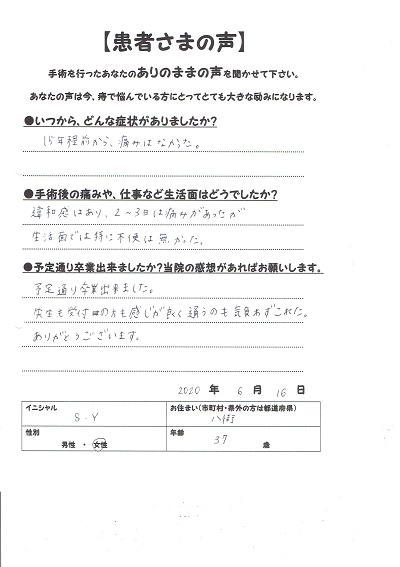 【患者さまの声】
手術を行ったあなたのありのままの声を聞かせて下さい。
あなたの声は今、痔で悩んでいる方にとってとても大きな励みになります。
●いつから、どんな症状がありましたか?
15年程前から、痛みはなかった。
●手術後の痛みや、仕事など生活面はどうでしたか?
違和感はあり、2～3日は痛みがあったが
生活面では特に不便は無かった。
●予定通り卒業出来ましたか?当院の感想があればお願いします。
予定通り卒業出来ました。
先生も受付の方も感じが良く通うのも気負わずこれた。
ありがとうございます。
2020 年 6 月 16 日
イニシャル
S・Y
お住まい(市町村・県外の方は都道府県)
八街
性別
男性 ・ 女性
年齢
37 歳